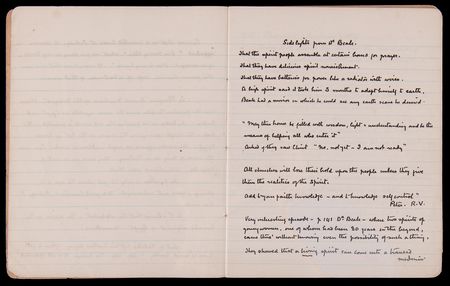 Sidelights from Dr Beale.
That the spirit people assemble at certain hours for prayer.
That they have delicious spirit nourishment.
That they have batteries for power like a radiator with wires.
A high spirit said it took him 3 months to adapt himself to earth.
Beale had a mirror in which he could see any earth scene he desired.
"May this house be filled with wisdom, light & understanding and be the
means of helping all who enter it"
Asked if they saw Christ "No, not yet - I am not ready"
All churches will lose their hold upon the people unless they give
them the realities of the Spirit.
Add to your faith knowledge - and to knowledge self control"
Peter. R.V.
Very interesting episode - p 141 Dr Beale - where two spirits of
young women, one of whom had been 80 years in the beyond,
came thro' without knowing even the possibility of such a thing.
They showed that a living spirit can come into a tranced
medium